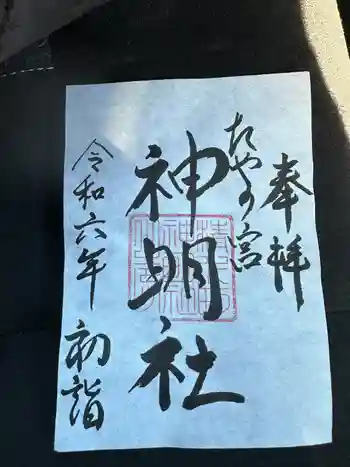 奉拝
たやの宮
神明社
令和六年 初詣